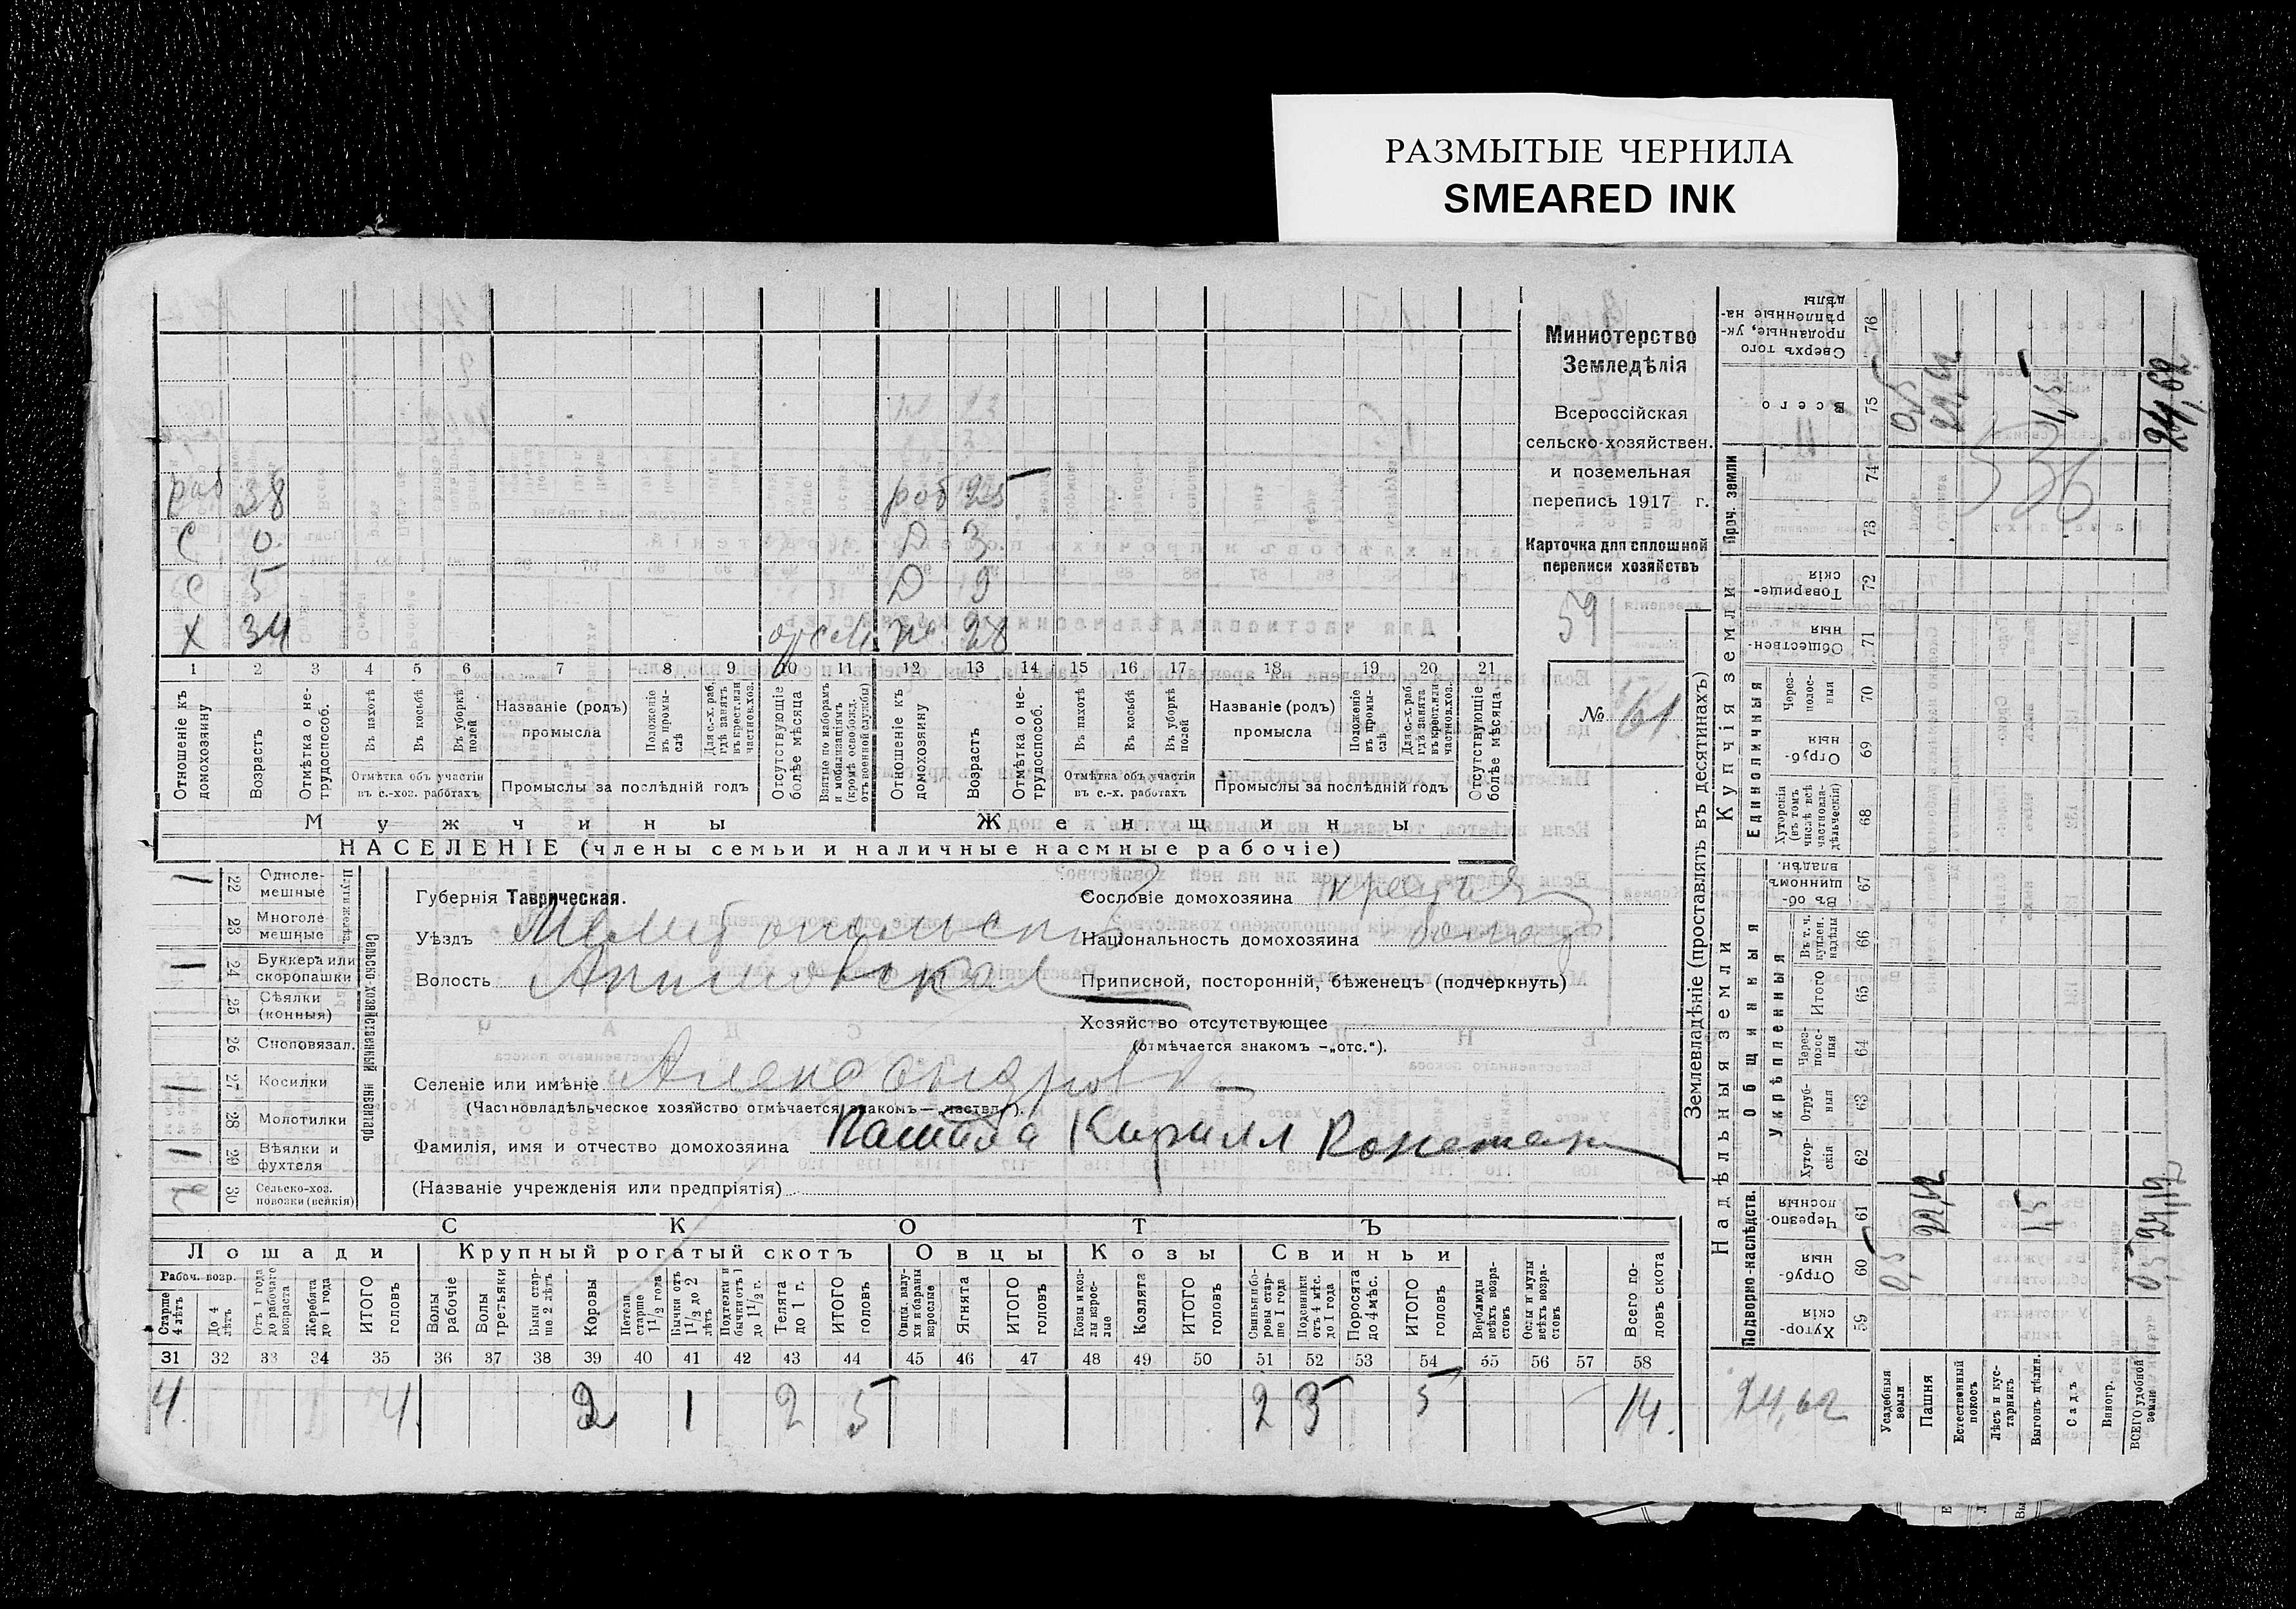 РАЗМЫТЫЕ ЧЕРНИЛА
SMEARED INK
раб 38 раб 25
С 0 Д 3
С 5 Д 9
Х 34 28
1 2 3 4 5 6 7 8 9 10 11 12 13 14 15 16 17 18 19 20 21
Отношеніе къ домохозяину
Возрастъ
Отмѣтка о не-трудоспособ.
Въ пахотѣ
Въ косьбѣ
Въ уборкѣ полей
Отмѣтка объ участіи въ с.-хоз. работахъ
Названіе (родъ) промысла
Положеніе въ промы-слѣ
Для с.-х. раб. гдѣ занятъ въ крест. или частнов. хоз.
Промыслы за послѣдній годъ
Отсутствующіе болѣе мѣсяца
Взятые по наборамъ и мобилизаціямъ (кромѣ освобожд. отъ военной службы)
Отношеніе къ домохозяину
Возрастъ
Отмѣтка о не-трудоспособ.
Въ пахотѣ
Въ косьбѣ
Въ уборкѣ полей
Отмѣтка объ участіи въ с.-х. работахъ
Названіе (родъ) промысла
Положеніе въ промы-слѣ
Для с.-х. раб. гдѣ занята въ крест. или частнов. хоз.
Промыслы за послѣдній годъ
Отсутствующіе болѣе мѣсяца
Мужчины Женщины
НАСЕЛЕНІЕ (члены семьи и наличные наемные рабочіе)
Министерство
Земледѣлія
Всероссійская
сельско-хозяйствен.
и поземельная
перепись 1917 г.
Карточка для сплошной
переписи хозяйствъ
59
№ 61
Сельско-хозяйственный инвентарь
Плуги желѣз.
22 Одноле-мешные 1
23 Многоле-мешные
24 Буккера или скоропашки 1
25 Сѣялки (конныя)
26 Сноповязал.
27 Косилки 1
28 Молотилки
29 Вѣялки и фухтеля 1
30 Сельско-хоз. повозки (всякія)
Губернія Таврическая.
Уѣздъ Мелитопольскій
Волость Акимовская
Селеніе или имѣніе Александровка
(Частновладѣльческое хозяйство отмѣчается знакомъ—„частвл.“).
Фамилія, имя и отчество домохозяина Кирилл
(Названіе учрежденія или предпріятія)
Сословіе домохозяина
Національность домохозяина
Приписной, посторонній, бѣженецъ (подчеркнуть)
Хозяйство отсутствующее
(отмѣчается знакомъ –„отс.“).
СКОТЪ
Лошади Крупный рогатый скотъ Овцы Козы Свиньи
Рабоч. возр.
Старше 4 лѣтъ
До 4 лѣтъ
Отъ 1 года до рабочаго возраста
Жеребята до 1 года
ИТОГО головъ
Волы рабочіе
Волы третьяки
Быки стар-ше 2 лѣтъ
Коровы
Нетели старше 1½ года
Бычки отъ 1½ до 2 лѣтъ
Подтелки и бычки отъ 1 до 1½ г.
Телята до 1 г.
ИТОГО головъ
Овцы, валу-хи и бараны взрослые
Ягнята
ИТОГО головъ
Козы и коз-лы взрос-лые
Козлята
ИТОГО головъ
Свиньи и бо-ровы стар-ше 1 года
Подсвинки отъ 4 мѣс. до 1 года
Поросята до 4 мѣс.
ИТОГО головъ
Верблюды всѣхъ возра-стовъ
Ослы и мулы всѣхъ возра-стовъ
Всего го-ловъ скота
31 32 33 34 35 36 37 38 39 40 41 42 43 44 45 46 47 48 49 50 51 52 53 54 55 56 57 58
4. 4. 2 1 2 5 2 3 5 14.
Землевладѣніе (проставлять въ десятинахъ)
Надѣльныя земли Купчія земли Проч. земли
Подворно-наслѣдств.
Общинныя
Укрѣпленныя
Единоличныя
Хутор-скія 59
Отруб-ныя 60
Черезпо-лосныя 61
Хутор-скія 62
Отруб-ныя 63
Через-полос-ныя 64
Итого 65
Въ т. ч. куплен. надѣлы 66
Въ об-щинномъ владѣн. 67
Хуторскія (въ томъ числѣ всѣ частновла-дѣльческія) 68
Отруб-ныя 69
Через-полос-ныя 70
Обществен-ныя 71
Товарище-скія 72
73
74
Всего 75
Сверхъ того проданные, ук-рѣпленные на-дѣлы 76
Усадебныя земли 0,5 0,5
Пашня 22,62
Естественный покосъ
Лѣсъ и кус-тарникъ
Выгонъ цѣлин. 1,5 1,5
Садъ
Виногр.
ВСЕГО удобной земли 0,5 24,62
24,62
536